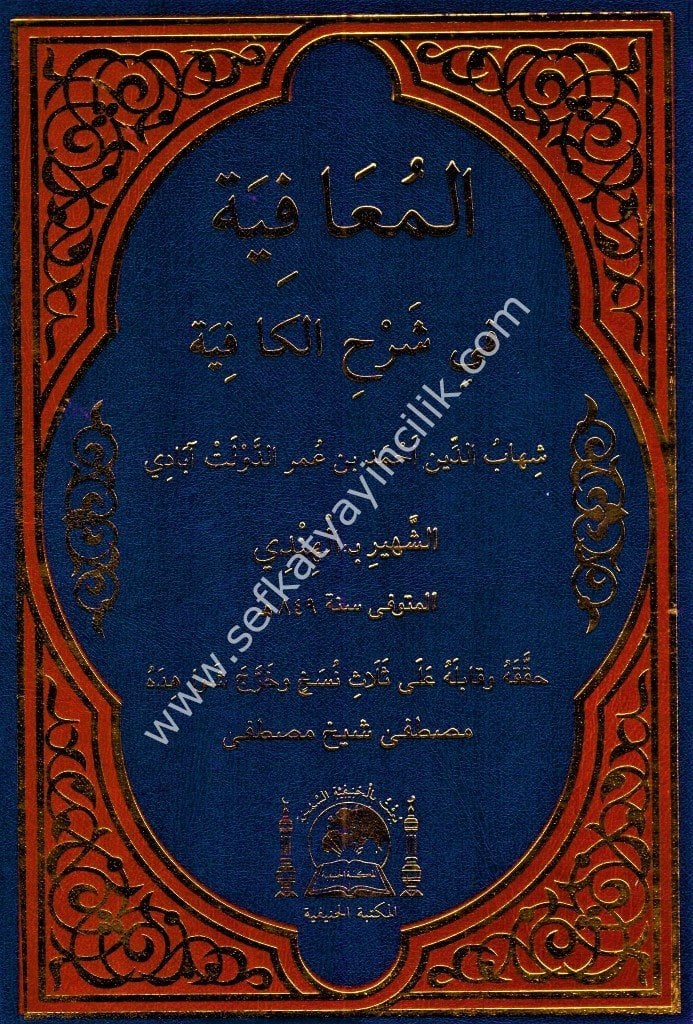 المُعَافِيَة
فِي شَرْحِ الكَافِيَة
شِهَابُ الدِّين أحمد بن عُمر الدَّوْلَتْ آبَادِي
الشَّهِيرِ بـ الهِنْدِي
المتوفى سنة ٨٤٩ هـ
حقَّقَهُ وقابلَهُ عَلَى ثَلَاثِ نُسَخٍ وخَرَّجَ شَوَاهِدَهُ
مصطفى شيخ مصطفى
المكتبة الحنيفية
www.sefkatyayincilik.com